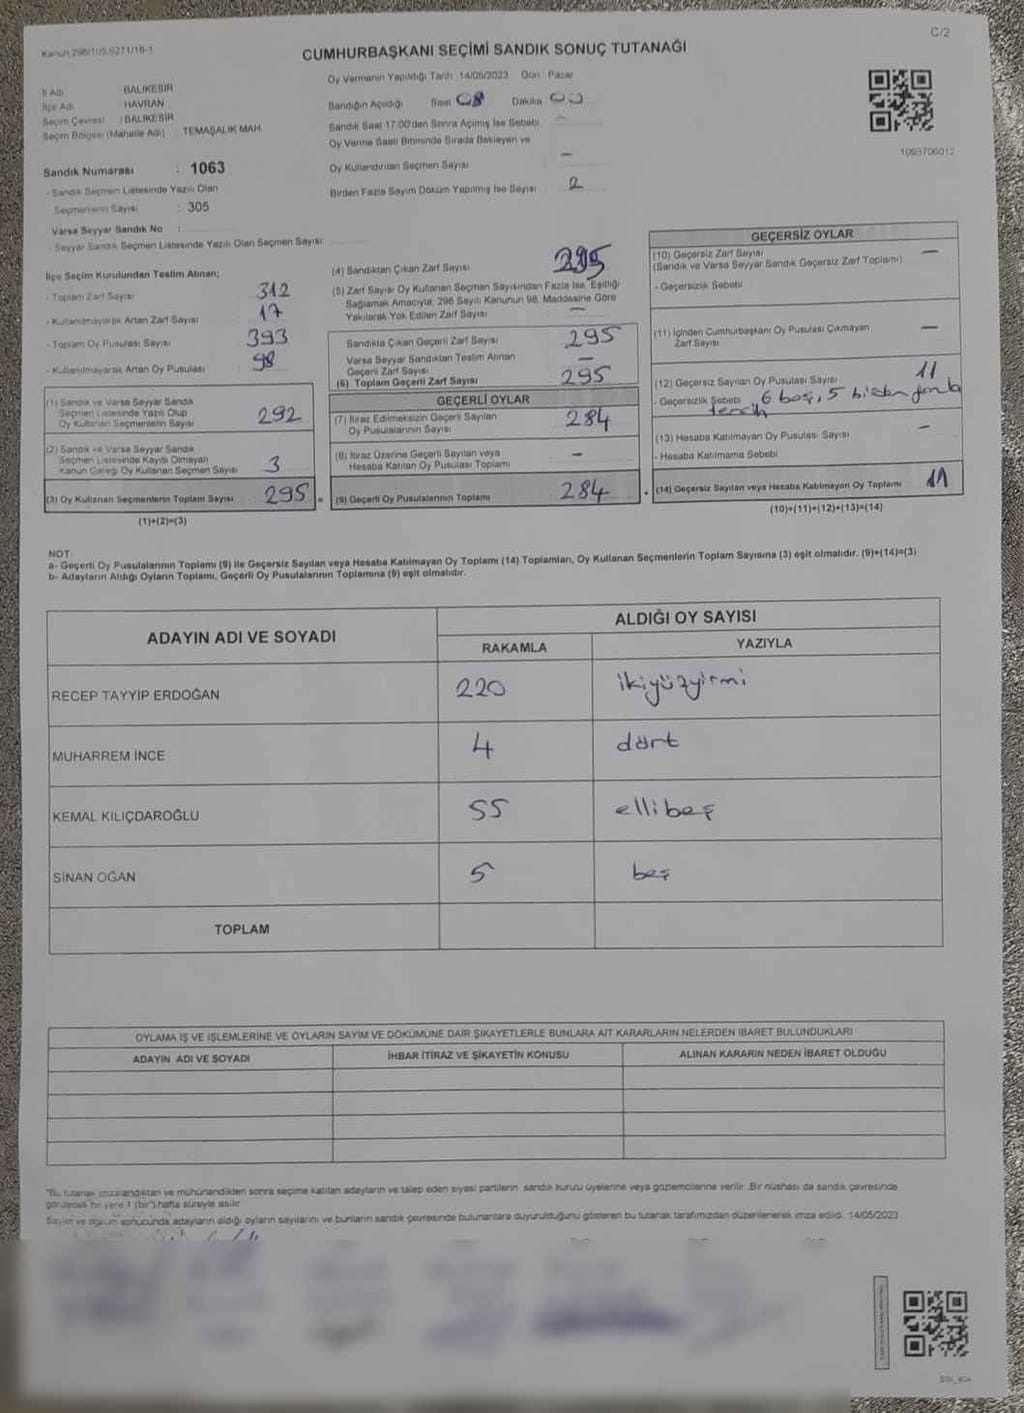 C/2
Kanun 298/105.6271/18-1
CUMHURBAŞKANI SEÇİMİ SANDIK SONUÇ TUTANAĞI
Oy Vermenin Yapıldığı Tarih :14/05/2023 Gün : Pazar
İl Adı : BALIKESİR
İlçe Adı : HAVRAN
Seçim Çevresi : BALIKESİR
Seçim Bölgesi (Mahalle Adı) : TEMAŞALIK MAH.
Sandığın Açıldığı Saat 08 Dakika 00
Sandık Saat 17:00'den Sonra Açılmış İse Sebebi
Oy Verme Saati Bitiminde Sırada Bekleyen ve
Oy Kullandırılan Seçmen Sayısı –
Birden Fazla Sayım Döküm Yapılmış İse Sayısı 2
1093706012
Sandık Numarası : 1063
- Sandık Seçmen Listesinde Yazılı Olan
Seçmenlerin Sayısı : 305
Varsa Seyyar Sandık No :
- Seyyar Sandık Seçmen Listesinde Yazılı Olan Seçmen Sayısı:
İlçe Seçim Kurulundan Teslim Alınan;
- Toplam Zarf Sayısı 312
- Kullanılmayarak Artan Zarf Sayısı 17
- Toplam Oy Pusulası Sayısı 393
- Kullanılmayarak Artan Oy Pusulası 98
(1) Sandık ve Varsa Seyyar Sandık
Seçmen Listesinde Yazılı Olup
Oy Kullanan Seçmenlerin Sayısı 292
(2) Sandık ve Varsa Seyyar Sandık
Seçmen Listesinde Kayıtlı Olmayan
Kanun Gereği Oy Kullanan Seçmen Sayısı 3
(3) Oy Kullanan Seçmenlerin Toplam Sayısı 295 =
(1)+(2)=(3)
(4) Sandıktan Çıkan Zarf Sayısı 295
(5) Zarf Sayısı Oy Kullanan Seçmen Sayısından Fazla İse, Eşitliği
Sağlamak Amacıyla, 298 Sayılı Kanunun 98. Maddesine Göre
Yakılarak Yok Edilen Zarf Sayısı –
Sandıkta Çıkan Geçerli Zarf Sayısı 295
Varsa Seyyar Sandıktan Teslim Alınan
Geçerli Zarf Sayısı –
(6) Toplam Geçerli Zarf Sayısı 295
GEÇERLİ OYLAR
(7) İtiraz Edilmeksizin Geçerli Sayılan
Oy Pusulalarının Sayısı 284
(8) İtiraz Üzerine Geçerli Sayılan veya
Hesaba Katılan Oy Pusulası Toplamı –
(9) Geçerli Oy Pusulalarının Toplamı 284
GEÇERSİZ OYLAR
(10) Geçersiz Zarf Sayısı –
(Sandık ve Varsa Seyyar Sandık Geçersiz Zarf Toplamı)
- Geçersizlik Sebebi
(11) İçinden Cumhurbaşkanı Oy Pusulası Çıkmayan
Zarf Sayısı –
(12) Geçersiz Sayılan Oy Pusulası Sayısı 11
- Geçersizlik Sebebi 6 boş, 5 birden fazla
tercih
(13) Hesaba Katılmayan Oy Pusulası Sayısı –
- Hesaba Katılmama Sebebi
(14) Geçersiz Sayılan veya Hesaba Katılmayan Oy Toplamı 11
(10)+(11)+(12)+(13)=(14)
NOT:
a- Geçerli Oy Pusulalarının Toplamı (9) ile Geçersiz Sayılan veya Hesaba Katılmayan Oy Toplamı (14) Toplamları, Oy Kullanan Seçmenlerin Toplam Sayısına (3) eşit olmalıdır. (9)+(14)=(3)
b- Adayların Aldığı Oyların Toplamı, Geçerli Oy Pusulalarının Toplamına (9) eşit olmalıdır.
ADAYIN ADI VE SOYADI
ALDIĞI OY SAYISI
RAKAMLA YAZIYLA
RECEP TAYYİP ERDOĞAN 220 ikiyüzyirmi
MUHARREM İNCE 4 dört
KEMAL KILIÇDAROĞLU 55 ellibeş
SİNAN OĞAN 5 beş
TOPLAM
OYLAMA İŞ VE İŞLEMLERİNE VE OYLARIN SAYIM VE DÖKÜMÜNE DAİR ŞİKAYETLERLE BUNLARA AİT KARARLARIN NELERDEN İBARET BULUNDUKLARI
ADAYIN ADI VE SOYADI İHBAR İTİRAZ VE ŞİKAYETİN KONUSU ALINAN KARARIN NEDEN İBARET OLDUĞU
"Bu tutanak imzalandıktan ve mühürlendikten sonra seçime katılan adayların ve talep eden siyasi partilerin sandık kurulu üyelerine veya gözlemcilerine verilir. Bir nüshası da sandık çevresinde
görülecek bir yere 1 (bir) hafta süreyle asılır
Sayım ve döküm sonucunda adayların aldığı oyların sayılarını ve bunların sandık çevresinde bulunanlara duyurulduğunu gösteren bu tutanak tarafımızdan düzenlenerek imza edildi. 14/05/2023